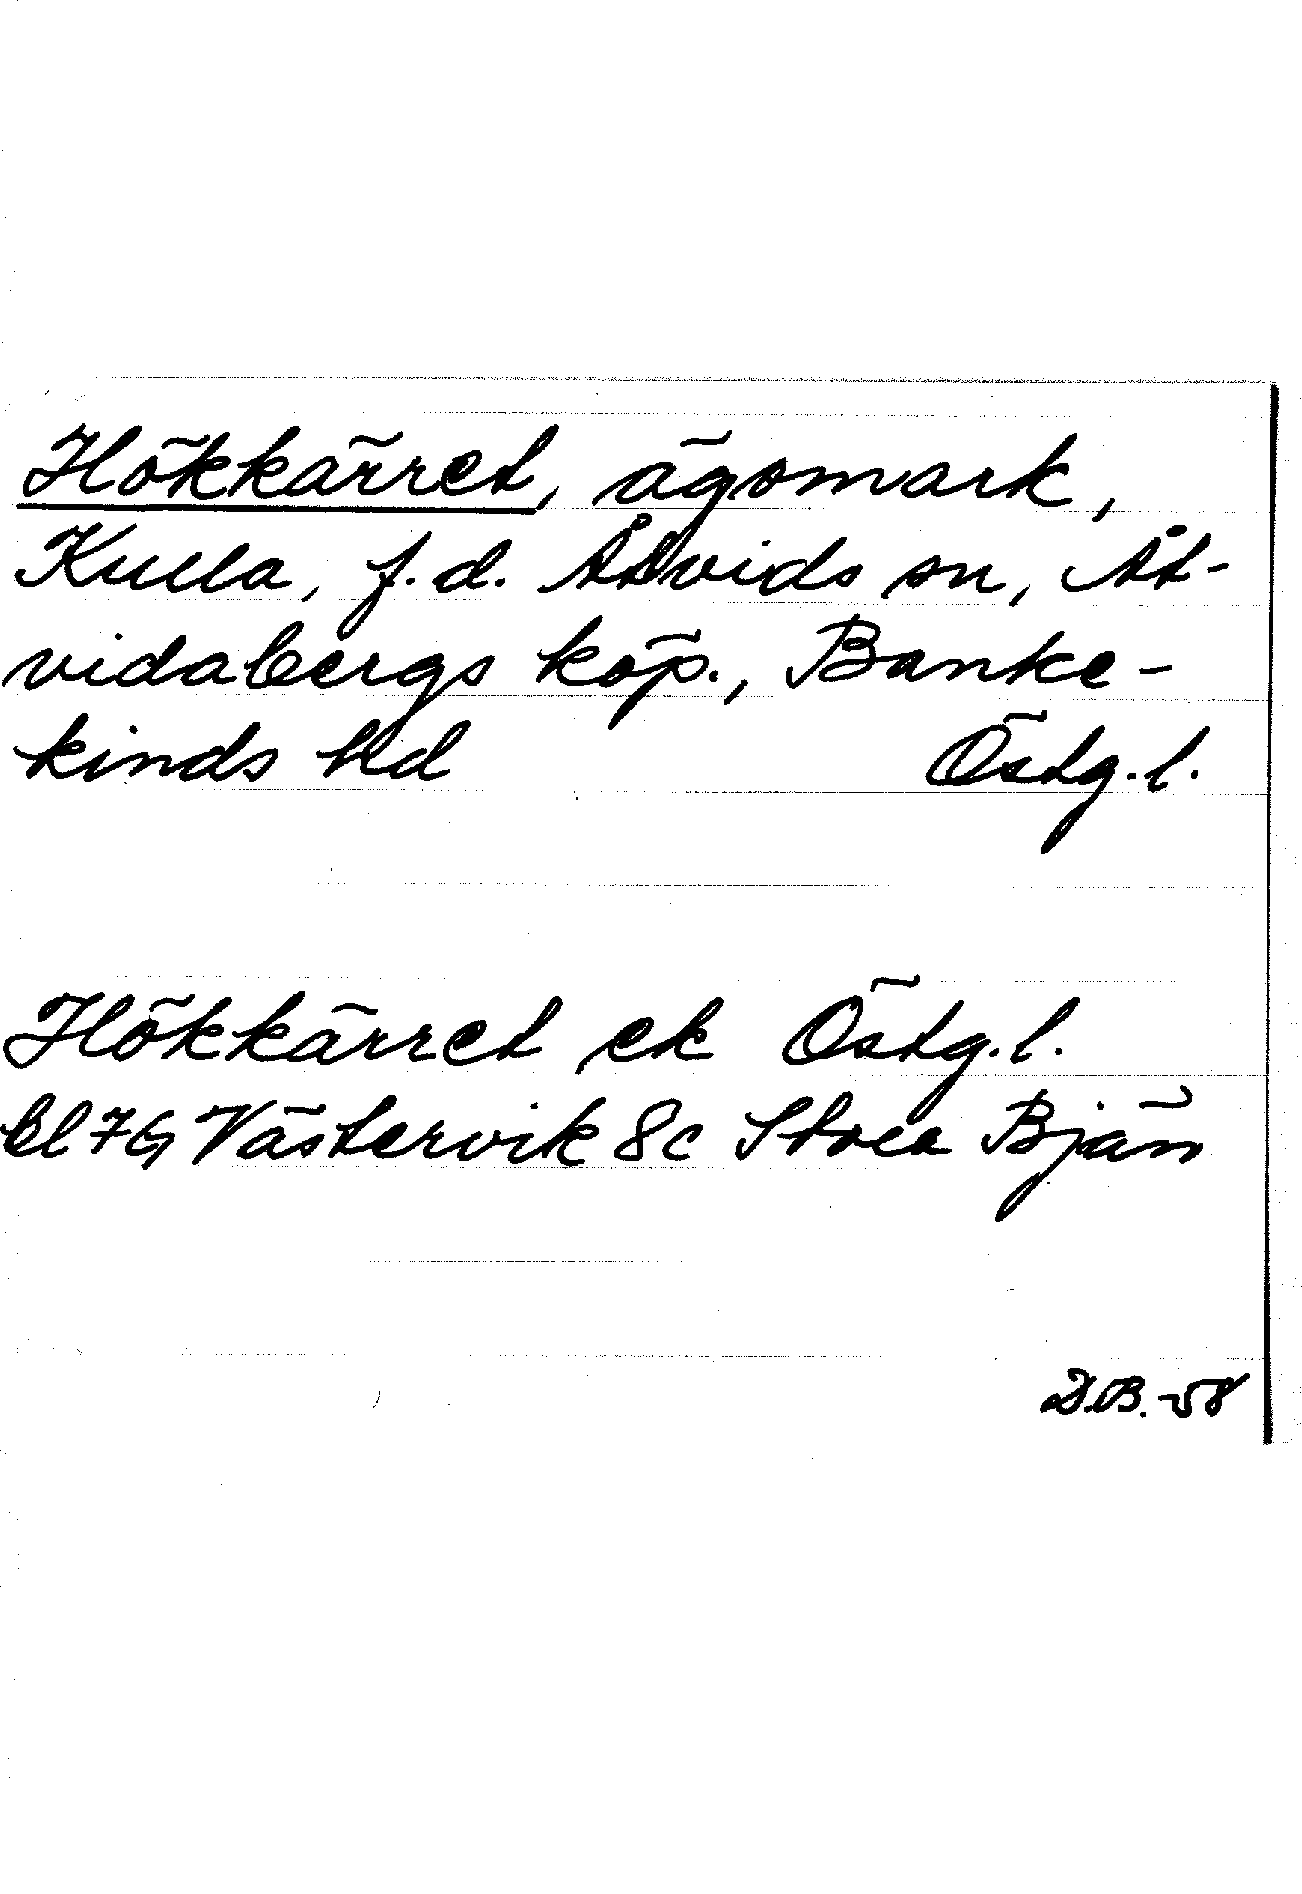 Hökkärret, ägomark,
Kulla, f.d. Åtvids sn, Åt-
vidabergs köp., Banke-
kinds hd Östg.l.
Hökkärret ek Östg.l.
Bl 7G Västervik 8c Stora Bjän
D.B.-58